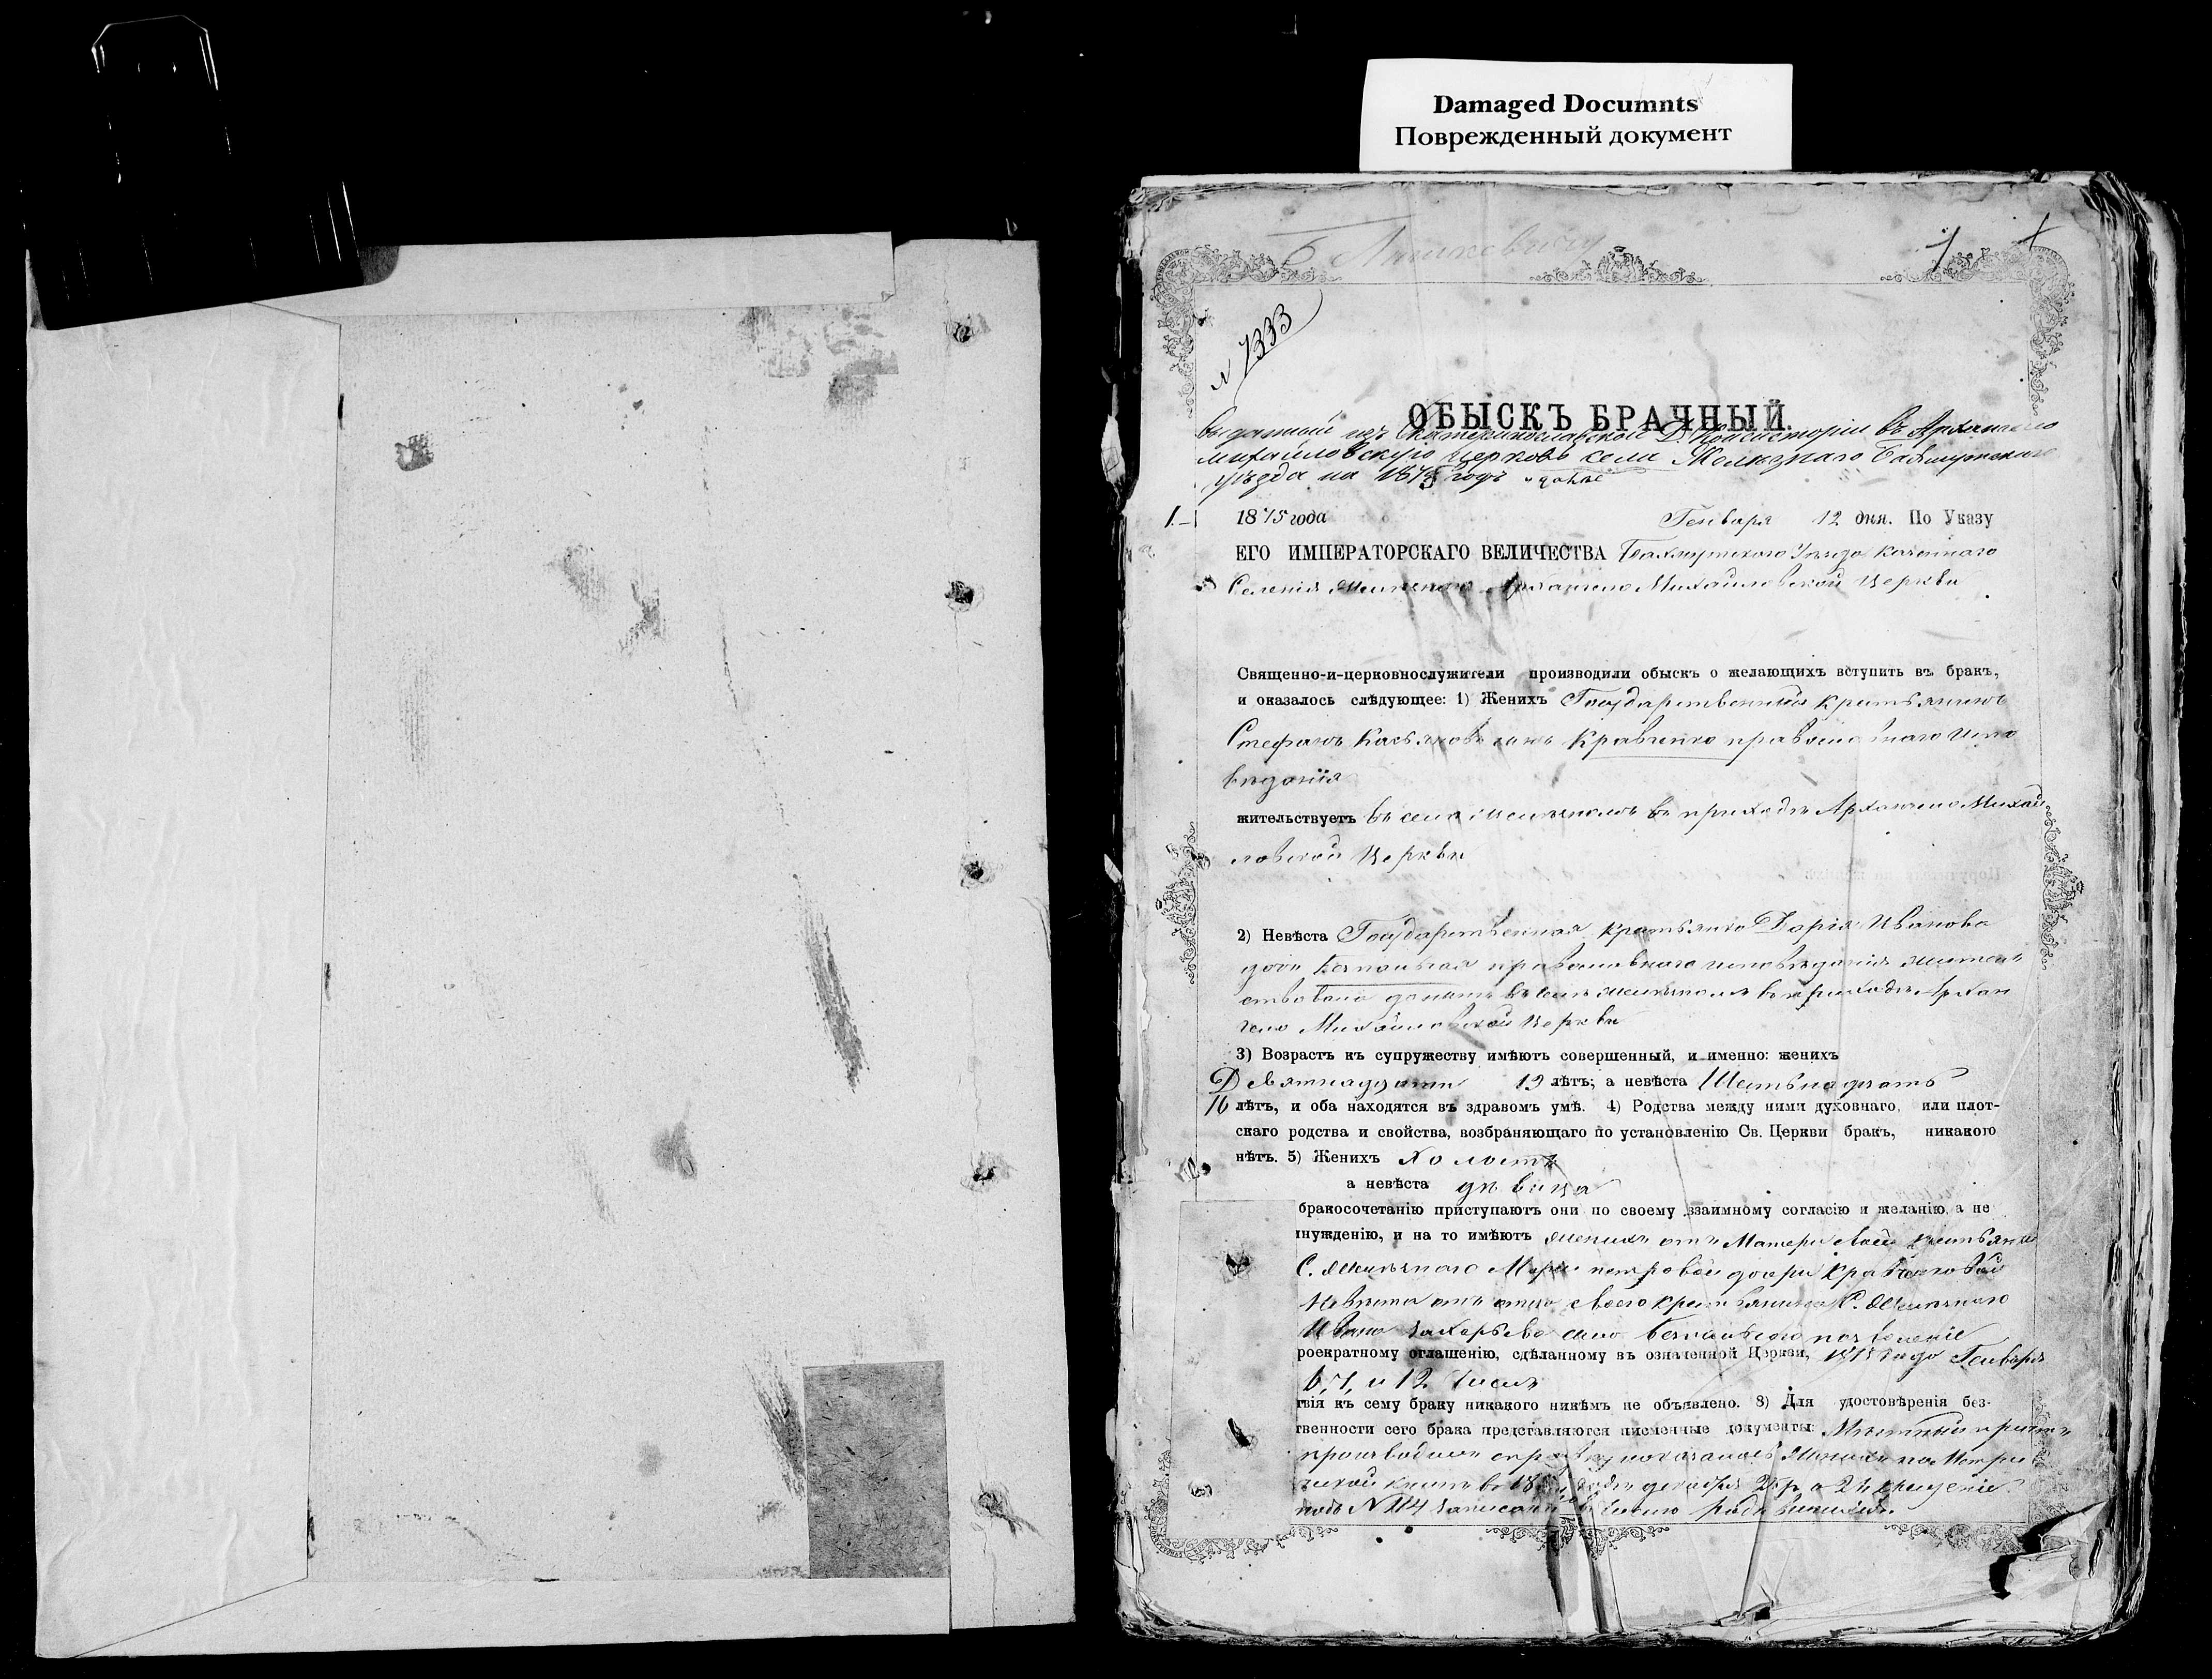 Damaged Documnts
Поврежденный документ
1
№ 1333
ОБЫСКЪ БРАЧНЫЙ.
выданный изъ Екатеринославской Д. Консисторіи въ Архангело
михайловскую церковь села Желѣзнаго Бахмутскаго
уѣзда на 1875 годъ и далѣе
1. 1875 года Генваря 12 дня. По Указу
ЕГО ИМПЕРАТОРСКАГО ВЕЛИЧЕСТВА Бахмутского Уѣзда казеннаго
Селенія Желѣзнаго Архангело Михайловской Церкви
Священно-и-церковнослужители производили обыскъ о желающихъ вступить въ бракъ,
и оказалось слѣдующее: 1) Женихъ Государственный крестьянинъ
Стефанъ Касьяновъ сынъ Кравченко православнаго испо
вѣданія
жительствуетъ въ селѣ Желѣзномъ въ приходѣ Архангело Михай
ловской Церкви
2) Невѣста Государственная крестьянка Дарія Иванова
дочь православнаго исповѣданія жител
ствовала донынѣ въ селѣ Желѣзномъ въ приходѣ Архан
гело Михайловской Церкви
3) Возрастъ къ супружеству имѣютъ совершенный, и именно: женихъ
Девятнадцать 19 лѣтъ; а невѣста Шестьнадцать
16 лѣтъ, и оба находятся въ здравомъ умѣ. 4) Родства между ними духовнаго, или плот-
скаго родства и свойства, возбраняющаго по установленію Св. Церкви бракъ, никакого
нѣтъ. 5) Женихъ Холостъ
а невѣста дѣвица
бракосочетанію приступаютъ они по своему взаимному согласію и желанію, а не
нужденію, и на то имѣютъ женихъ отъ Матери своей крестьянки
С. Желѣзнаго Маріи петровой дочери Кравченковой
Невѣста отъ отца своего крестьянина С. Желѣзнаго
Ивана Захарьева сына позволеніе
роекратному оглашенію, сдѣланному въ означенной Церкви, 1875 года Генваря
6, 7, и 12 Чиселъ
твія къ сему браку никакого никѣмъ не объявлено. 8) Для удостовѣренія без-
твенности сего брака представляются писменные документы: Мѣстный причтъ
производилъ Женихъ по Метри
ческой книгѣ декабря крещеніе
подъ № 114 записанъ